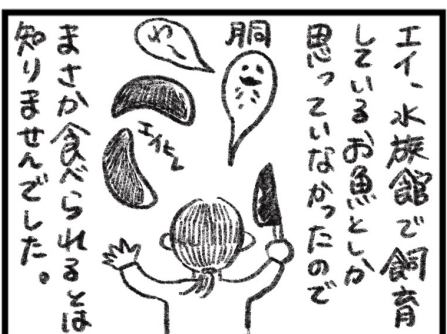 エイ、水族館で飼育
しているお魚としか
思っていなかったので
胴
わ〜
エイヒレ
まさか食べられるとは
知りませんでした。